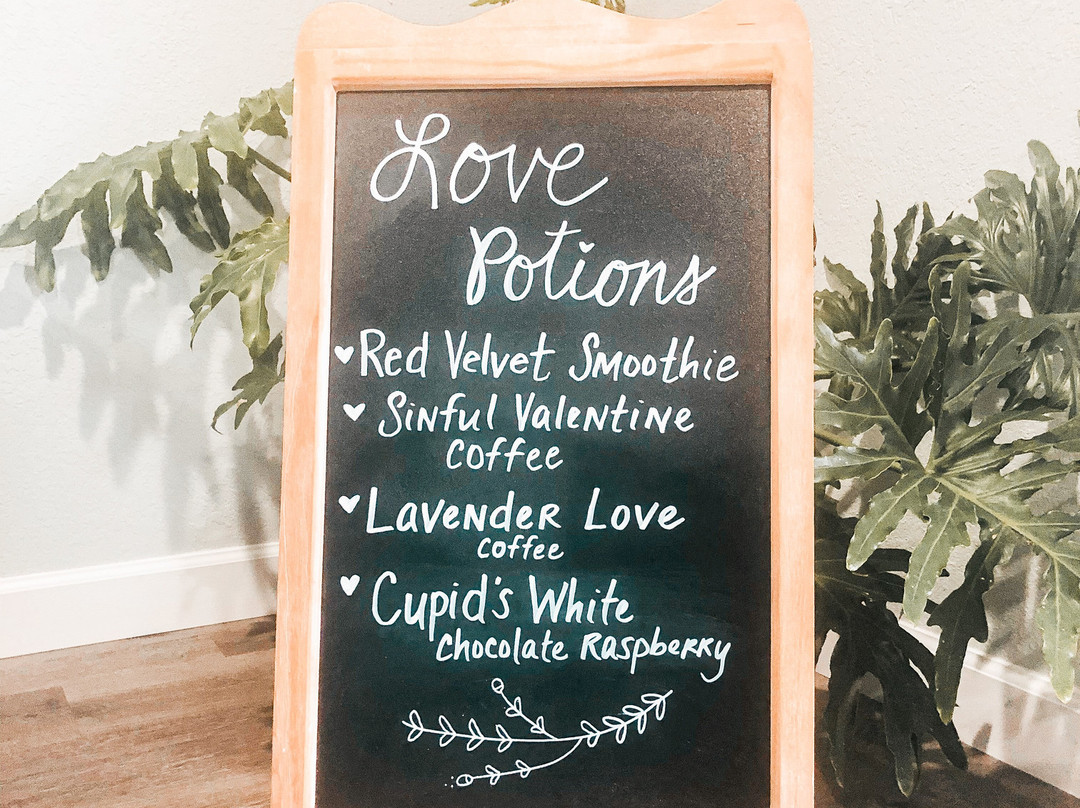 Love
Potions
Red Velvet Smoothie
Sinful Valentine
Coffee
Lavender Love
Coffee
Cupid's White
Chocolate Raspberry